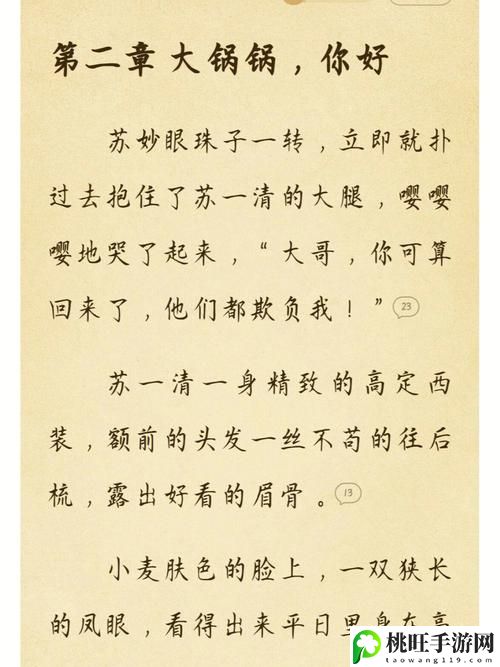 第二章 大锅锅，你好
苏妙眼珠子一转，立即就扑
过去抱住了苏一清的大腿，嘤嘤
嘤地哭了起来，“大哥，你可算
回来了，他们都欺负我！”
23
苏一清一身精致的高定西
装，额前的头发一丝不苟的往后
梳，露出好看的眉骨。
13
小麦肤色的脸上，一双狭长
的凤眼，看得出来平日里身在高
桃旺手游网
taowang119.com